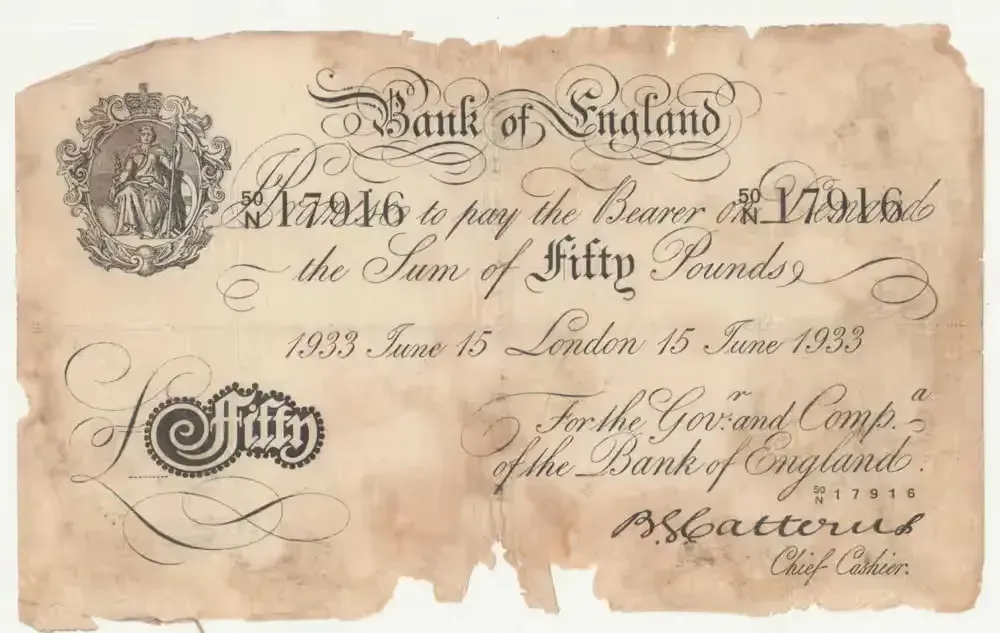 Bank of England
50/N 17916 50/N 17916
I Promise to pay the Bearer on Demand
the Sum of Fifty Pounds
1933 June 15 London 15 June 1933
£ Fifty
For the Govr. and Compa.
of the Bank of England.
50/N 17916
B.G. Catterns
Chief Cashier.